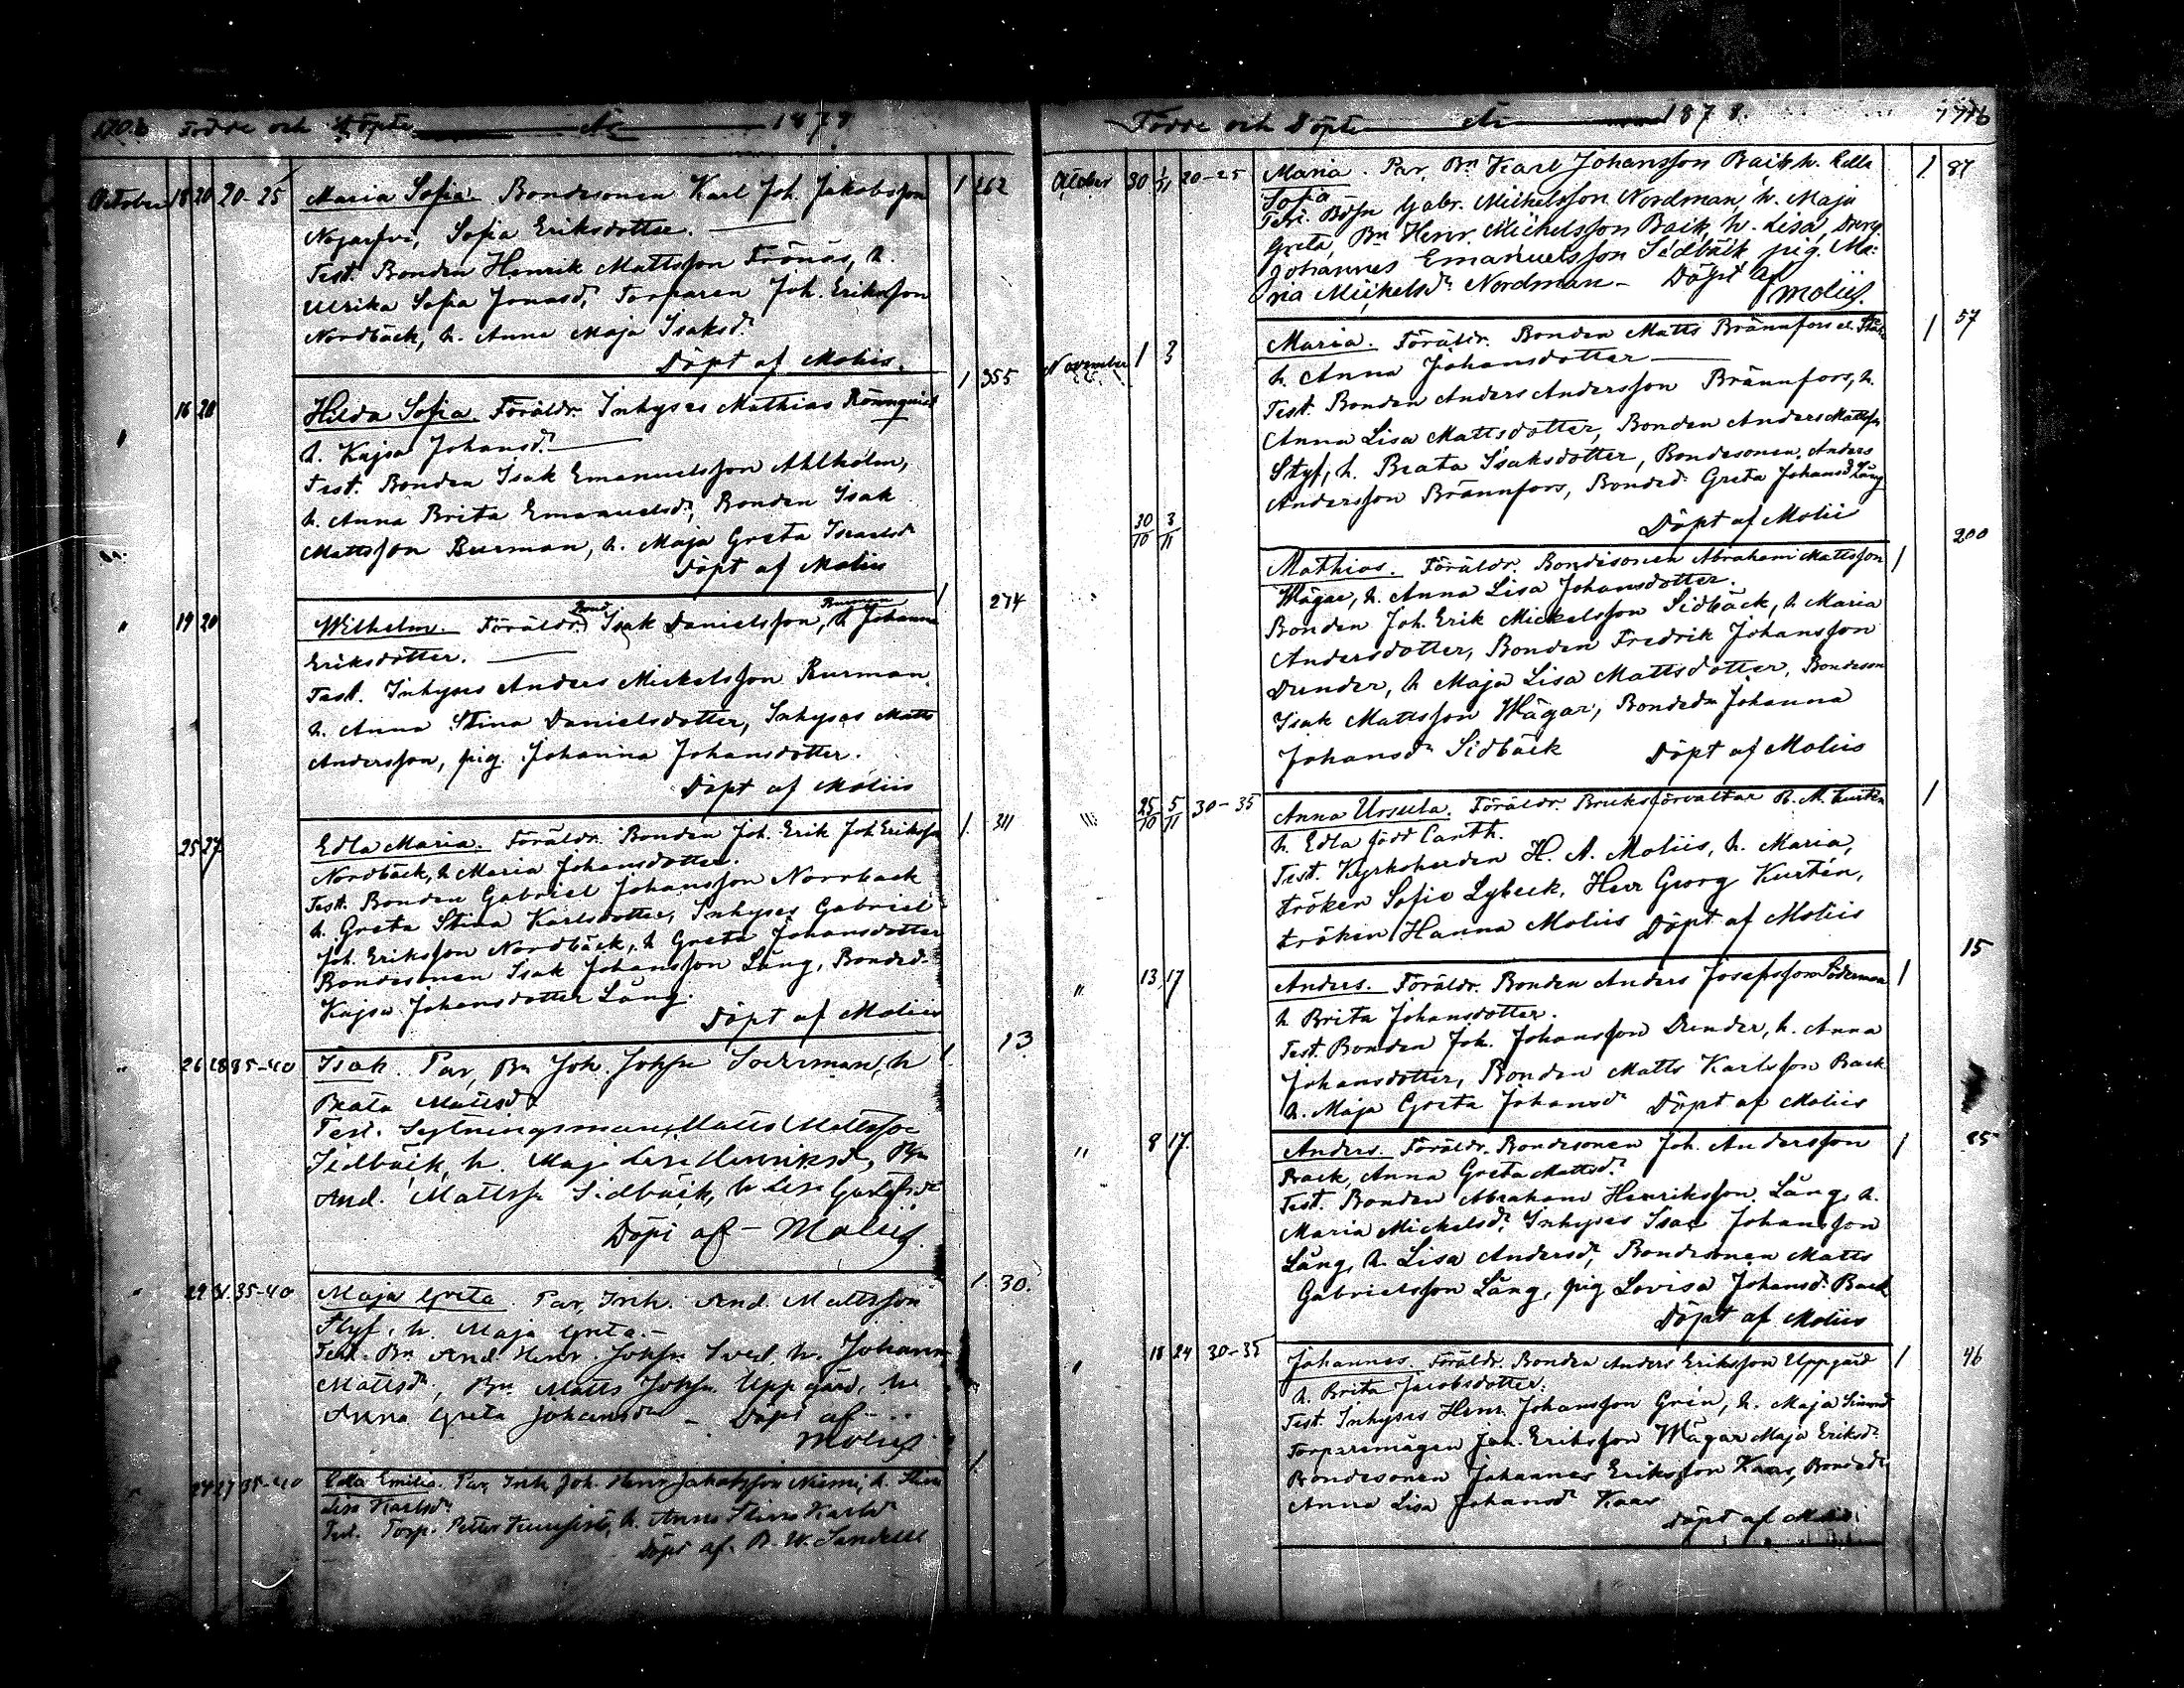 Födde och Döpte År 1878
October 18 20 20-25 Maria Sofia. Bondesonen Karl Joh. Jakobsson 1 262
Sofia Eriksdotter.
Test. Bonden Henrik Mattsson Frönäs, h.
Ulrika Sofia Jonasd. Torparen Joh. Eriksson
Nordbäck, h. Anna Maja Isaksdr
Döpt af Moliis.
" 16 20 Hilda Sofia. Föräldr. Inhyses Mathias Rönnquist 1 355
h. Kajsa Johansdr
Test. Bonden Isak Emanuelsson Ahlholm,
h. Anna Brita Emanuelsdr, Bonden Isak
Mattsson Burman, h. Maja Greta Israelsdr
Döpt af Moliis
" 19 20 Wilhelm. Föräldr. Bond. Isak Danielsson Burman, h Johanna 1 274
Eriksdotter.
Test. Inhyses Anders Mickelsson Burman.
h. Anna Stina Danielsdotter, Inhyses Matts
Andersson, pig. Johanna Johansdotter.
Döpt af Moliis
25 27 Edla Maria. Föräldr. Bonden Joh. Erik Joh. Eriksson 1. 311
Nordbäck, h Maria Johansdotter.
Test. Bonden Gabriel Johansson Norrback
h. Greta Stina Karlsdotter, Inhyses Gabriel
Joh. Eriksson Nordbäck, h Greta Johansdotter
Bondesonen Isak Johansson Lång, Bonded.
Kajsa Johansdotter Lång.
Döpt af Moliis
" 26 28 35-40 Isak. Par, Bn Joh. Jossn Soderman, h 1 13
Beata Mattsdr
Test. Sytningsman Matts Mattsson
Sidbäck, h. Maj Lisa Henriksd, Bn
And. Mattssn Sidbäck, h Lisa Gustafsdr
Döpt af - Moliis.
" 29 31 35-40 Maja Greta. Par, Inh. And. Mattsson 1. 30.
Styf, h. Maja Greta.-
Test. Bn And. Henr. Johssn Sved, h. Johanna
Mattsdr, Bn Matts Johssn Uppgård, h.
Anna Greta Johansdr - Döpt af
Moliis
24 27 35-40 Edla Emilia. Par, Inh. Joh. Henr. Jakobsson Niemi, h. Stina 1.
Lisa Karlsdr
Test. Torp. Petter h. Anna Stina Karlsd
Döpt af R. W. Sandell
Födde och Döpte År 1878.
October 30 1/11 20-25 Maria. Par, Bn Karl Johansson Back h. Edla 1 87
Sofia
Test. Bdsn Gabr. Michelsson Nordman, h. Maja
Greta, Bn Henr. Michelsson Back, h. Lisa, Dreng.
Johannes Emanuelsson Sidbäck, pig. Ma:
ria Michelsdr Nordman - Döpt af
Moliis.
November 1 3 Maria. Föräldr. Bonden Matts Brännfors 1 57
h. Anna Johansdotter
Test. Bonden Anders Andersson Brännfors, h.
Anna Lisa Mattsdotter, Bonden Anders Mattsson
Styf, h. Beata Isaksdotter, Bondesonen Anders
Andersson Brännfors, Bonded. Greta Johansd Lång
Döpt af Moliis
30/10 3/11 Mathias. Föräldr. Bondesonen Abraham Mattsson 1 200
Wägar, h. Anna Lisa Johansdotter.
Bonden Joh. Erik Mickelsson Sidbäck, h Maria
Andersdotter, Bonden Fredrik Johansson
Dunder, h Maja Lisa Mattsdotter, Bondeson
Isak Mattsson Wägar, Bondedr Johanna
Johansdr Sidbäck Döpt af Moliis
" 25/10 5/11 30-35 Anna Ursula. Föräldr. Bruksförvaltar R. M. Kurtén 1
h. Edla född Canth.
Test. Kyrkoherden H. A. Moliis, h. Maria,
Fröken Sofie Lybeck, Herr Georg Kurtén,
Fröken Hanna Moliis Döpt af Moliis
" 13 17 Anders. Föräldr. Bonden Anders Josefsson Söderman 1 15
h Brita Johansdotter.
Test. Bonden Joh. Johansson Dunder, h. Anna
Johansdotter, Bonden Matts Karlsson Back
h. Maja Greta Johansdr Döpt af Moliis
" 8 17 Anders. Föräldr. Bondesonen Joh. Andersson 1 85
Back, Anna Greta Mattsdr
Test. Bonden Abraham Henriksson Lång, h.
Maria Mickelsdr, Inhyses Isac Johansson
Lång, h. Lisa Andersdr, Bondesonen Matts
Gabrielsson Lång, pig Lovisa Johansd. Back
Döpt af Moliis
" 18 24 30-35 Johannes. Föräldr. Bonden Anders Eriksson Uppgård 1 46
h. Brita Jacobsdotter.
Test. Inhyses Henr. Johansson Grén, h. Maja Simonsd
Torparemågen Joh. Eriksson Wägar Maja Eriksdr
Bondesonen Johannes Eriksson Kaas, Bondedr
Anna Lisa Johansdr Kaas
Döpt af Moliis